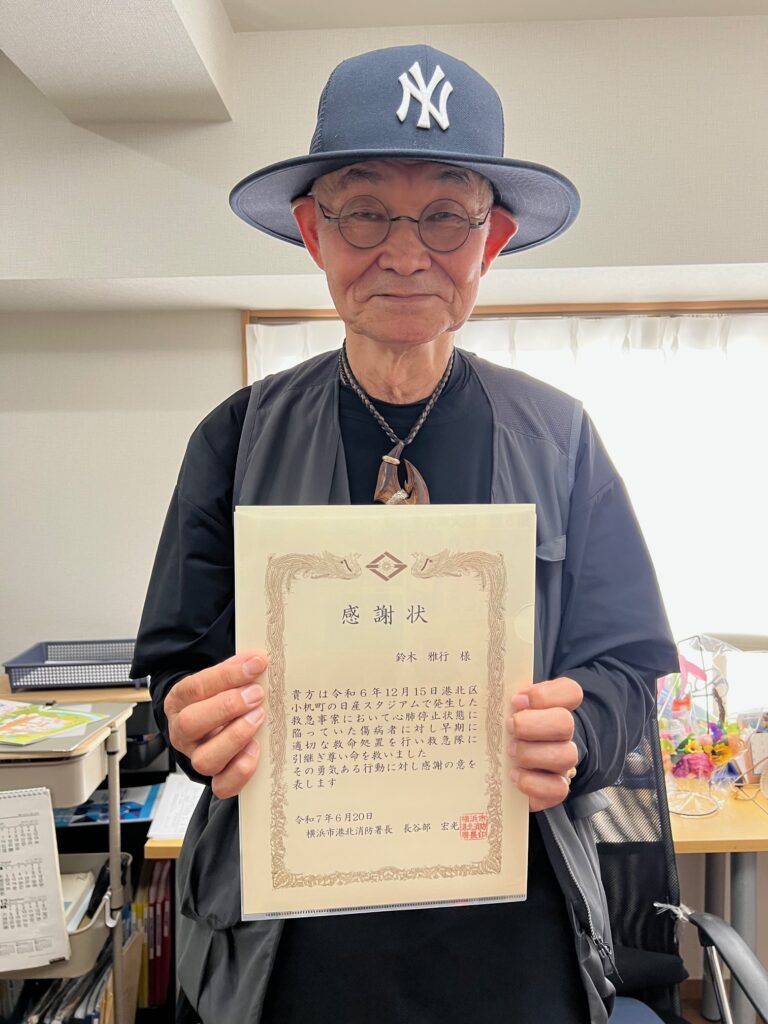 NY
感謝状
鈴木 雅行 様
貴方は令和6年12月15日港北区
小机町の日産スタジアムで発生した
救急事案において心肺停止状態に
陥っていた傷病者に対し早期に
適切な救命処置を行い救急隊に
引継ぎ尊い命を救いました
その勇気ある行動に対し感謝の意を
表します
令和7年6月20日
横浜市港北消防署長 長谷部 宏光